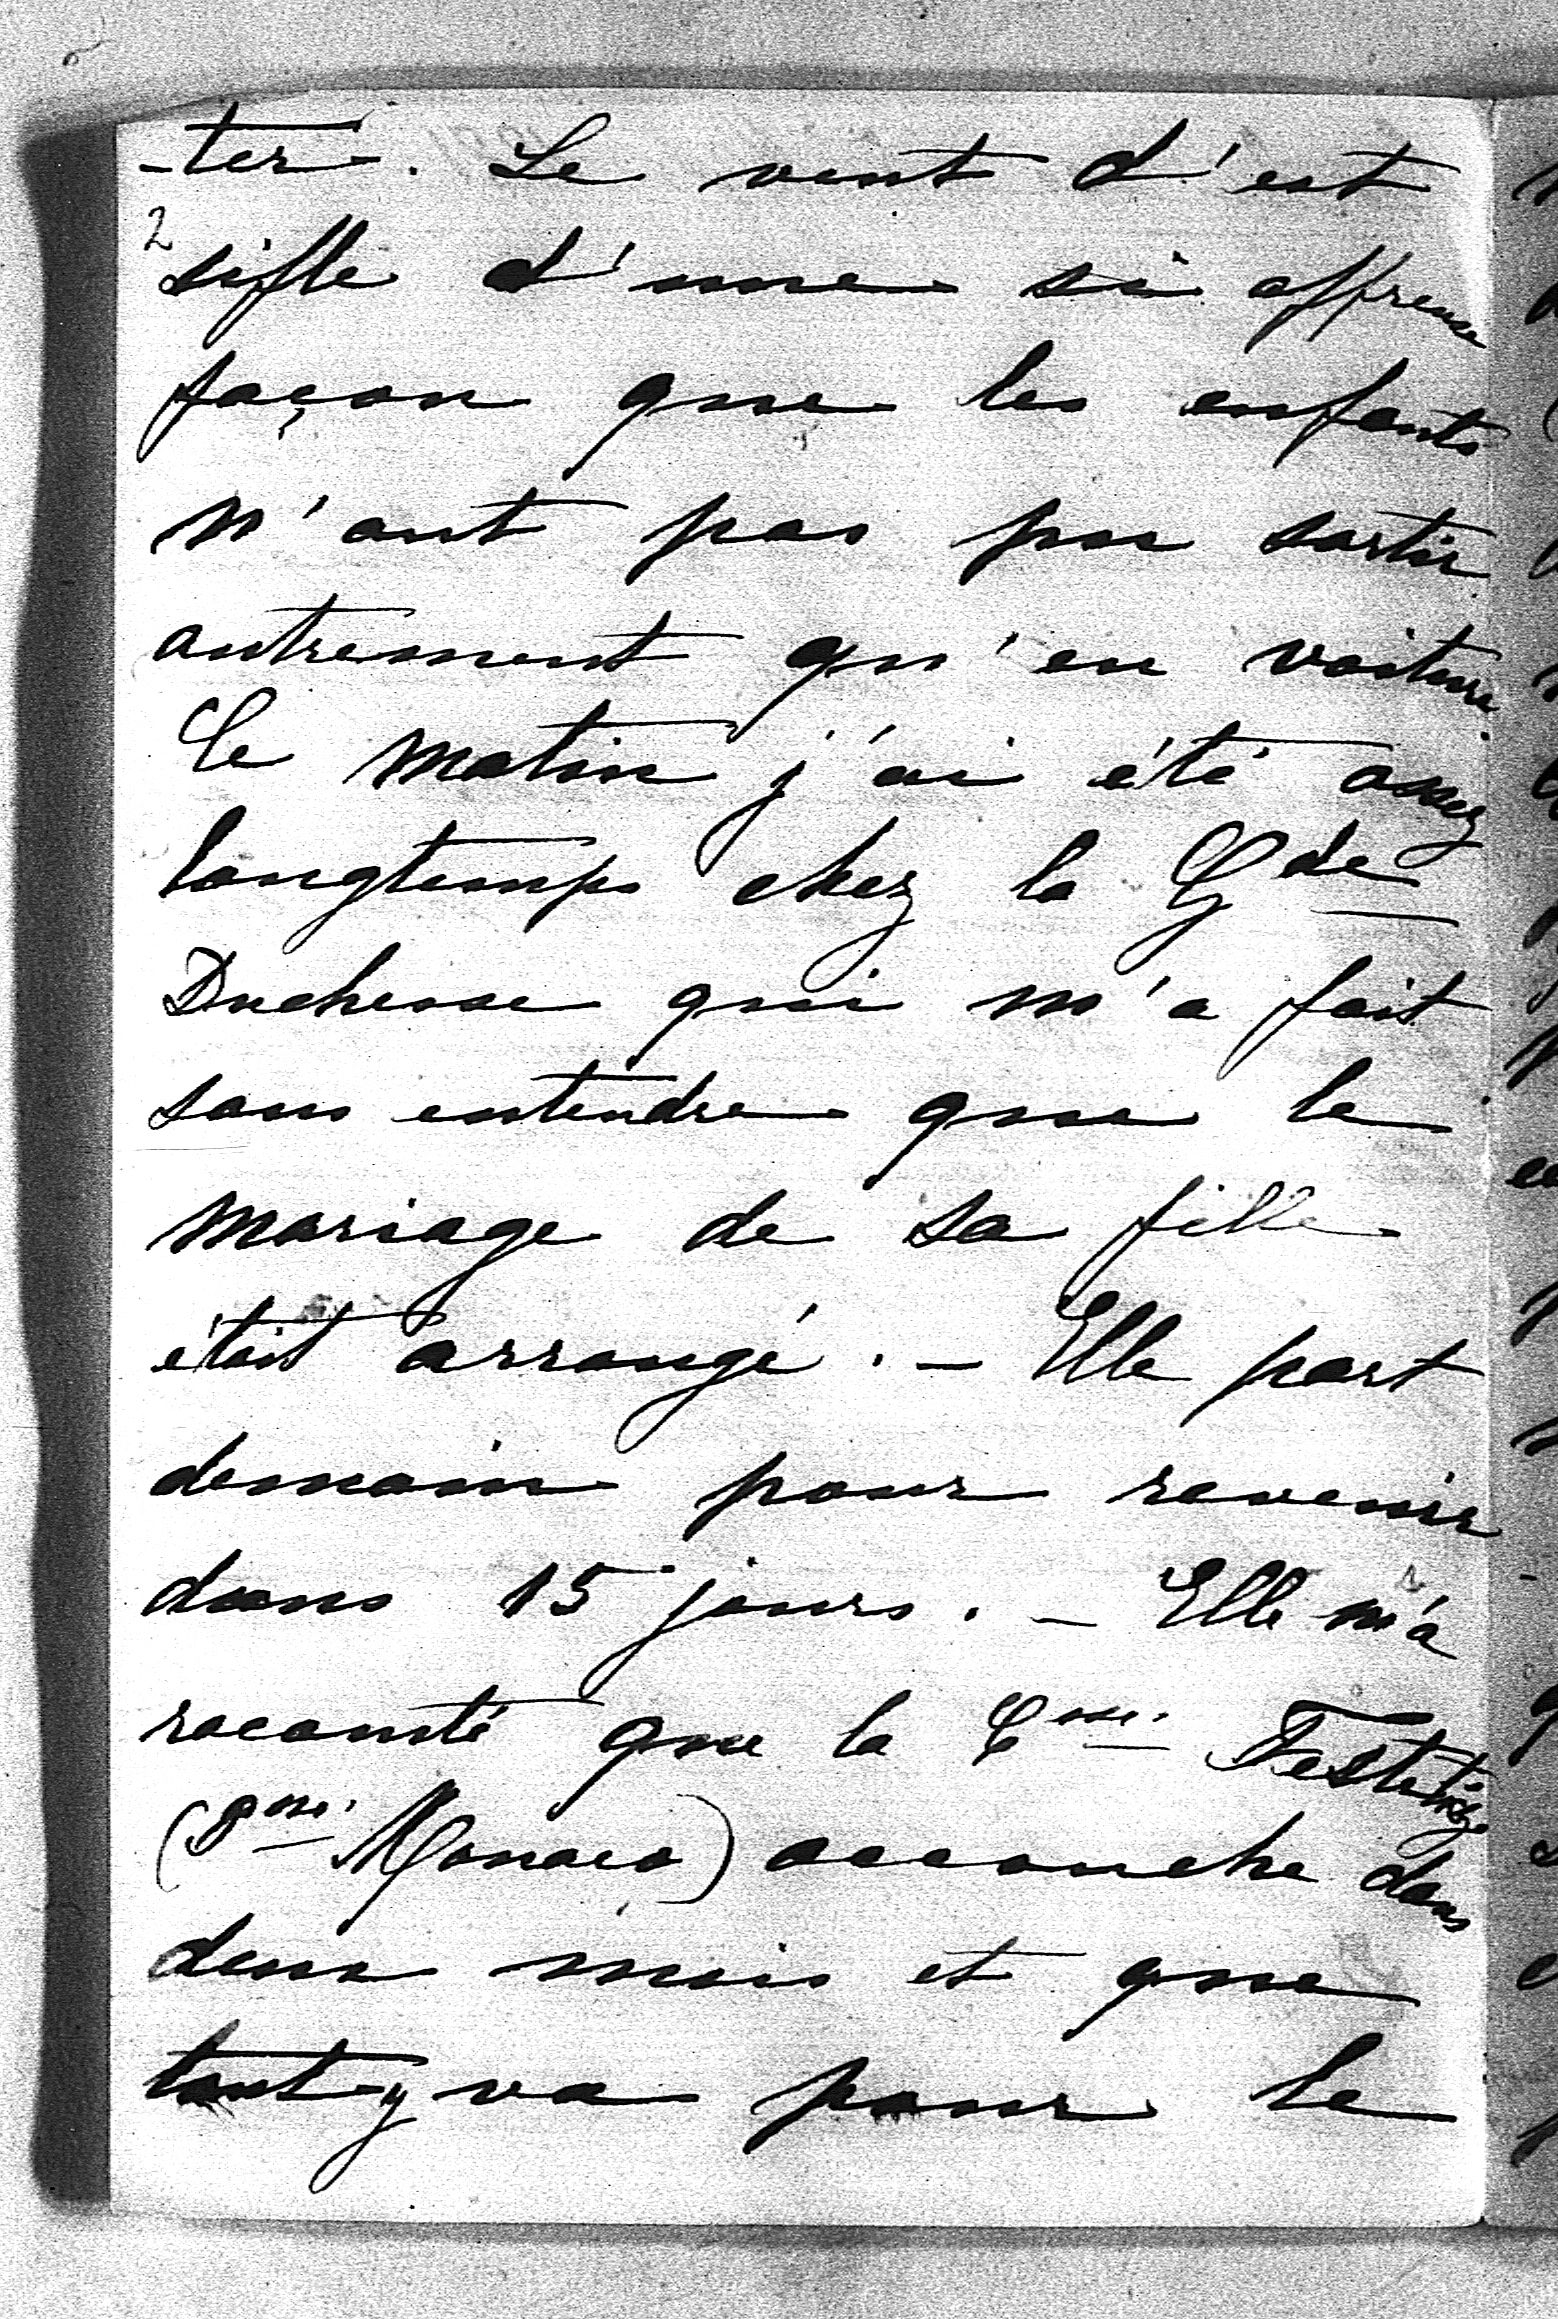 -ter. Le vent d'est
2
sifle d'une si affreuse
façon que les enfants
n'ont pas pu sortir
autrement qu'en voiture.
Ce matin j'ai été assez
longtemps chez la Gde
Duchesse qui m'a fait
sous entendre que le
mariage de sa fille
était arrangé. — Elle part
demain pour revenir
dans 15 jours. — Elle m'a
raconté que la Csse. Festetics
(Psse. Monaco) accouche dans
deux mois et que
tout y va pour le